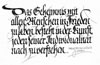 Das Geheimnis mit
allen Menschen in Frieden
zu leben besteht in der Kunst
jeden seiner Individualität
nach zu verstehen